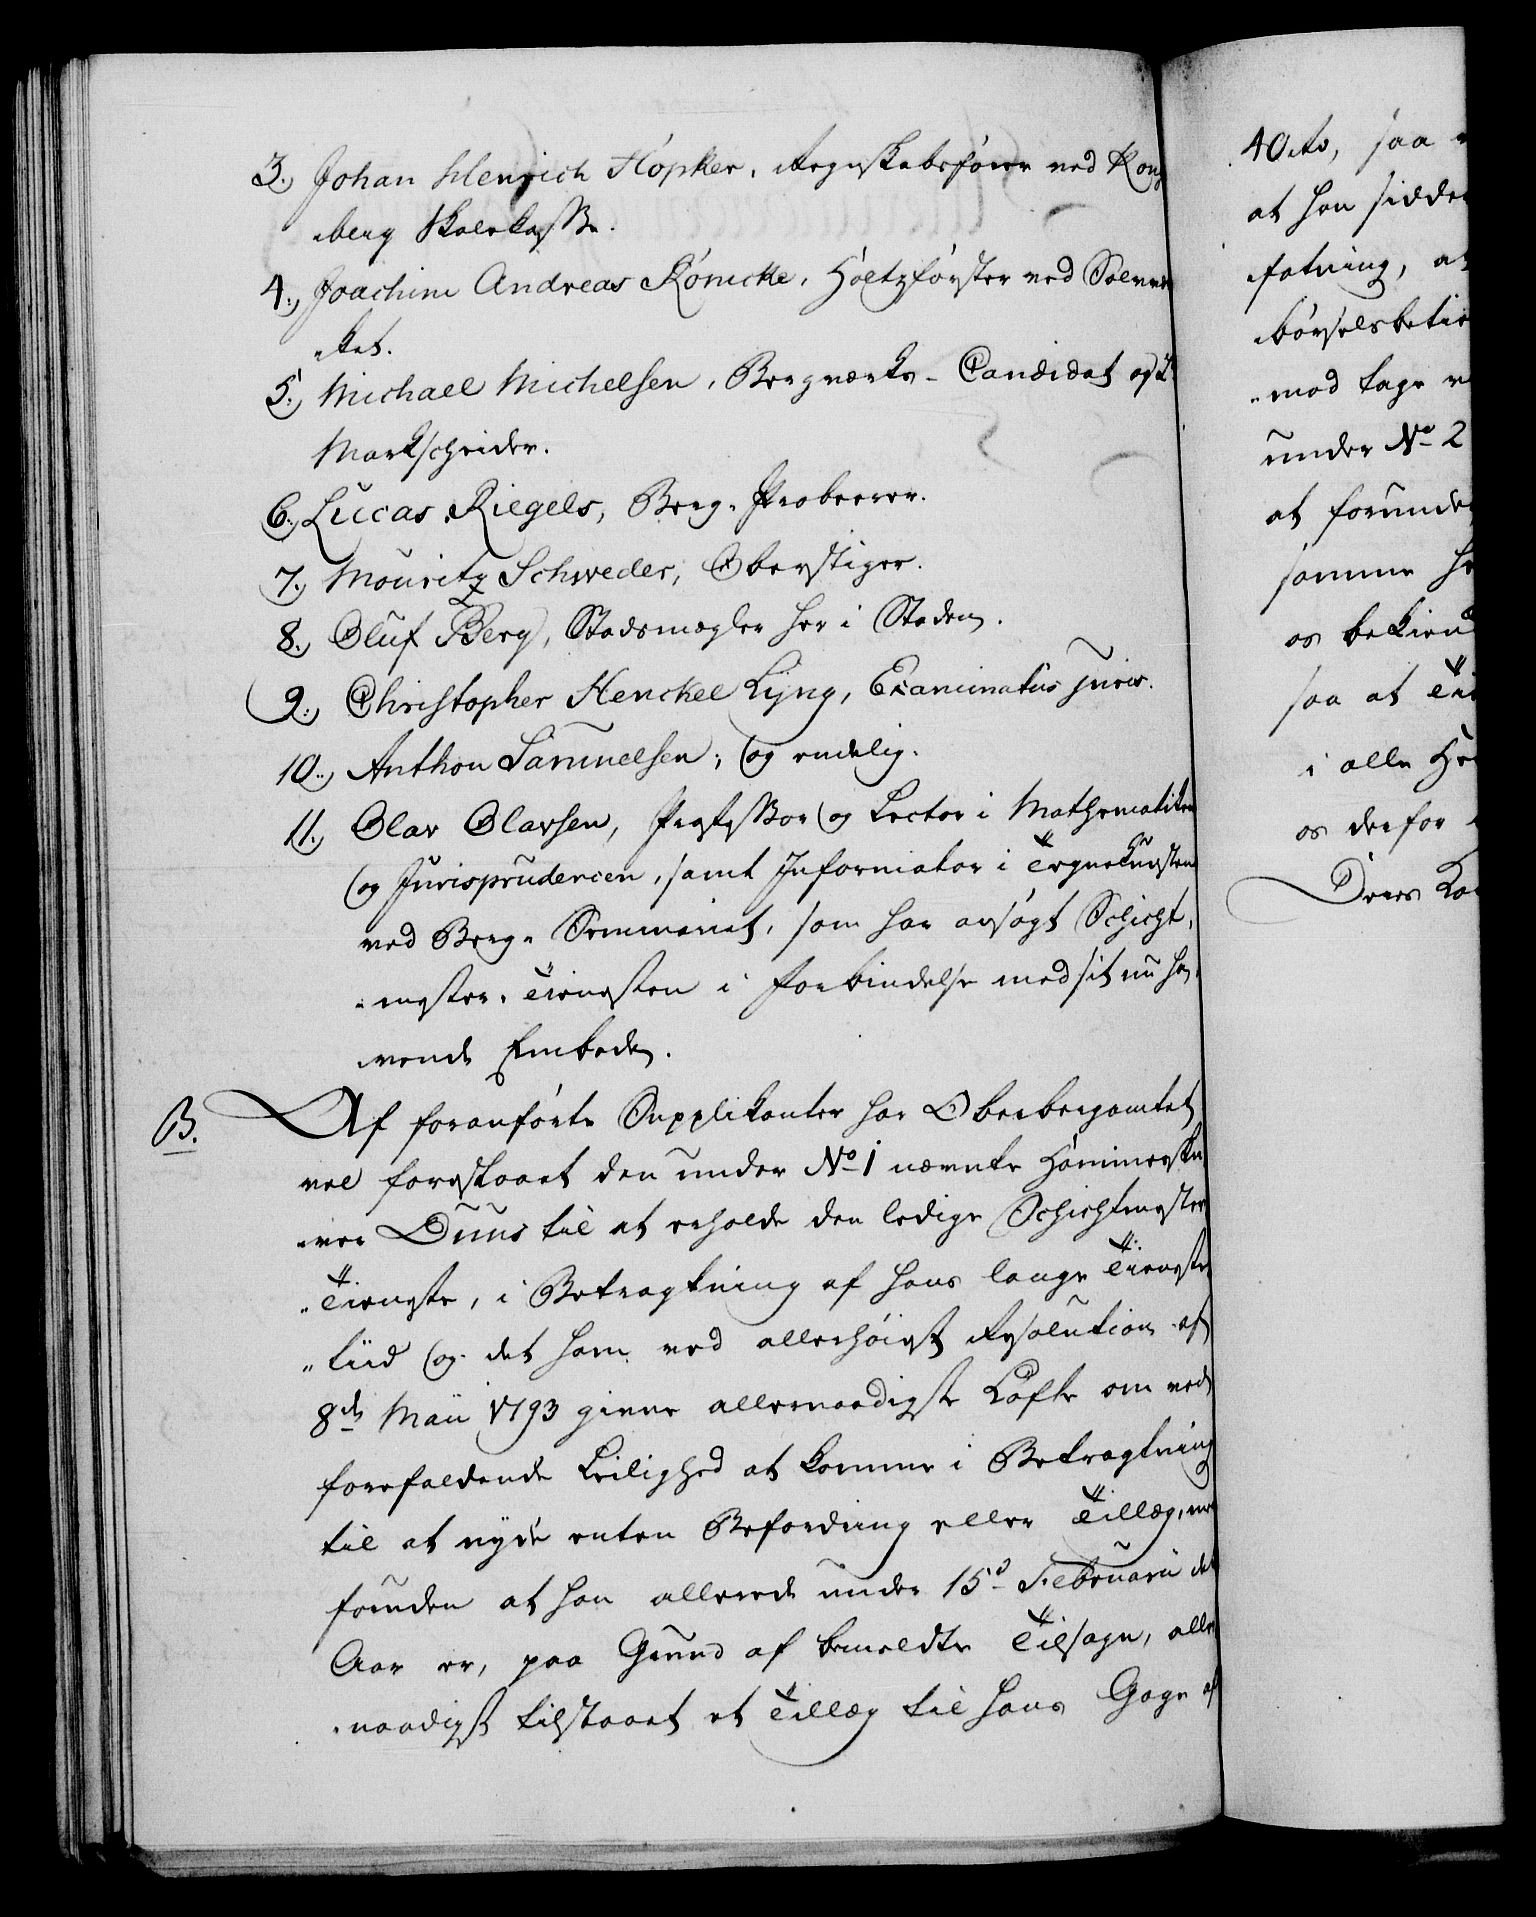 3., Johan Henrich Höpker, Regnskabsfører ved Kong
berg Skolekasse.
4., Joachim Andreas Könicke, Holtzförster ved Sølvver
ket.
5., Michael Michelsen, Bergværks-Candidat og
Markscheider.
6., Lucas Riegels, Berg-Probeerer.
7., Mouritz Schweder, Oberstiger.
8., Oluf Berg, Stadsmægler her i Staden.
9., Christopher Henckel Lyng, Examinatus juris.
10., Anthon Samuelsen; og endelig.
11., Olav Olavsen, Professor og Lector i Mathematiken
og Jurisprudencen, samt Informator i Tegnekunsten
ved Berg-Seminariet, som har ansøgt Schicht,
mester-Tienesten i Forbindelse med sit nu ha,
vende Embede.
B. Af foranførte Supplikanter har Oberbergamtet
vel foreslaaet den under No 1 nævnte Hammerskri
ver Duus til at erholde den ledige Schichtmester
Tieneste, i Betragtning af hans lange Tieneste
tiid og det ham ved allerhøiest Resolution af
8de Maii 1793 givne allernaadigste Løfte om ved
forefaldende Leilighed at komme i Betragtning
til at nyde enten Befordring eller Tillæg, me
formeden at han allerede under 15d Februarii det
Aar er, paa Grund af bemeldte Tilsagn, aller
naadigst tilstaaet et Tillæg til hans Gage af
40 rd, saa
at han sidde
fatning, at
børselsbetie
mod tage
under No 2
at forunde
samme
os bekiend
saa at
i alle
os derfor
Deres